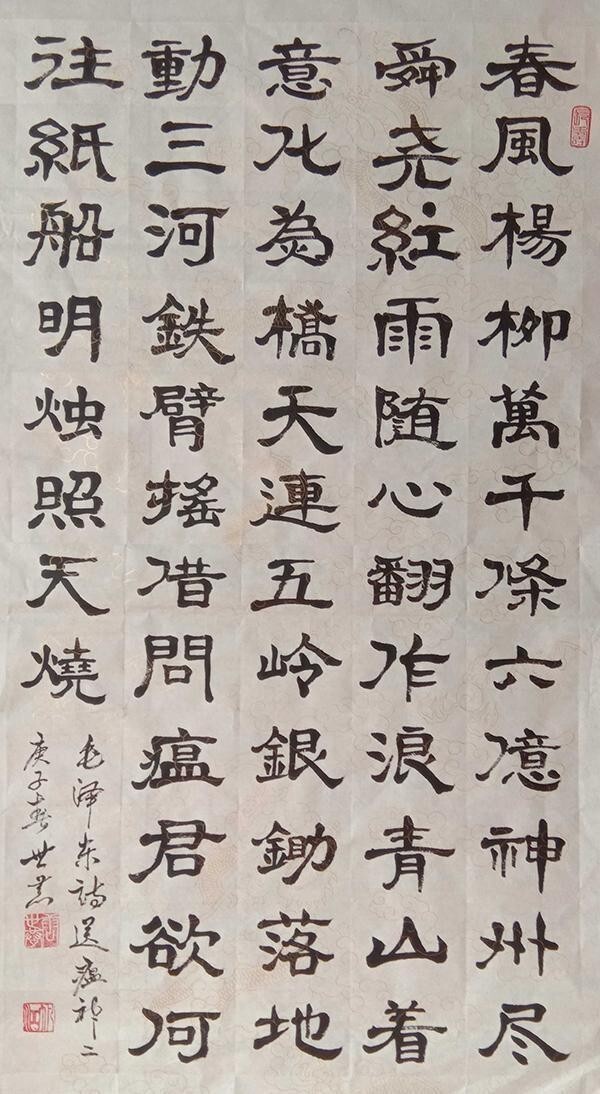 春風楊柳萬千條六億神州尽
舜尧紅雨随心翻作浪青山着
意化為橋天連五岭銀鋤落地
動三河鉄臂摇借問瘟君欲何
往紙船明烛照天燒
毛泽东诗送瘟神二
庚子春世荣